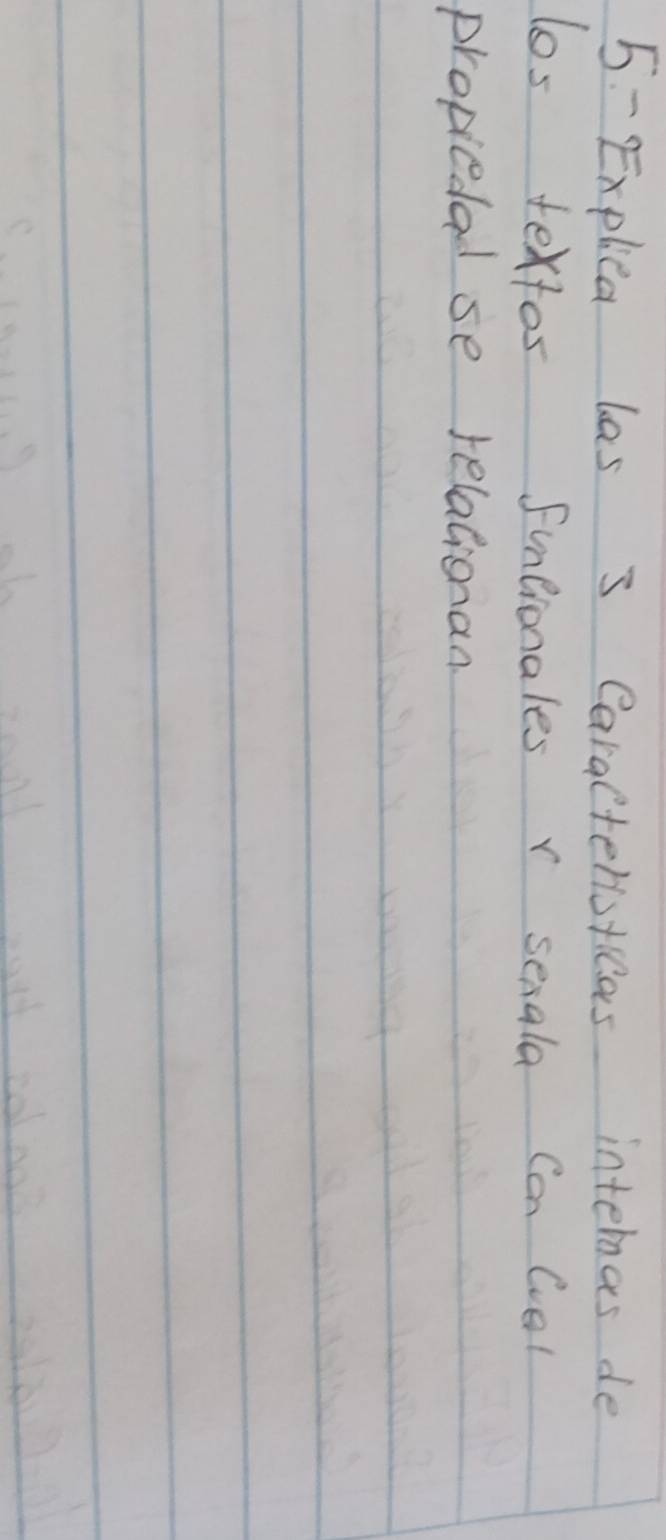 5.- Explica las 3 características internas de
los textos funcionales y senala con cual
propiedad se relacionan